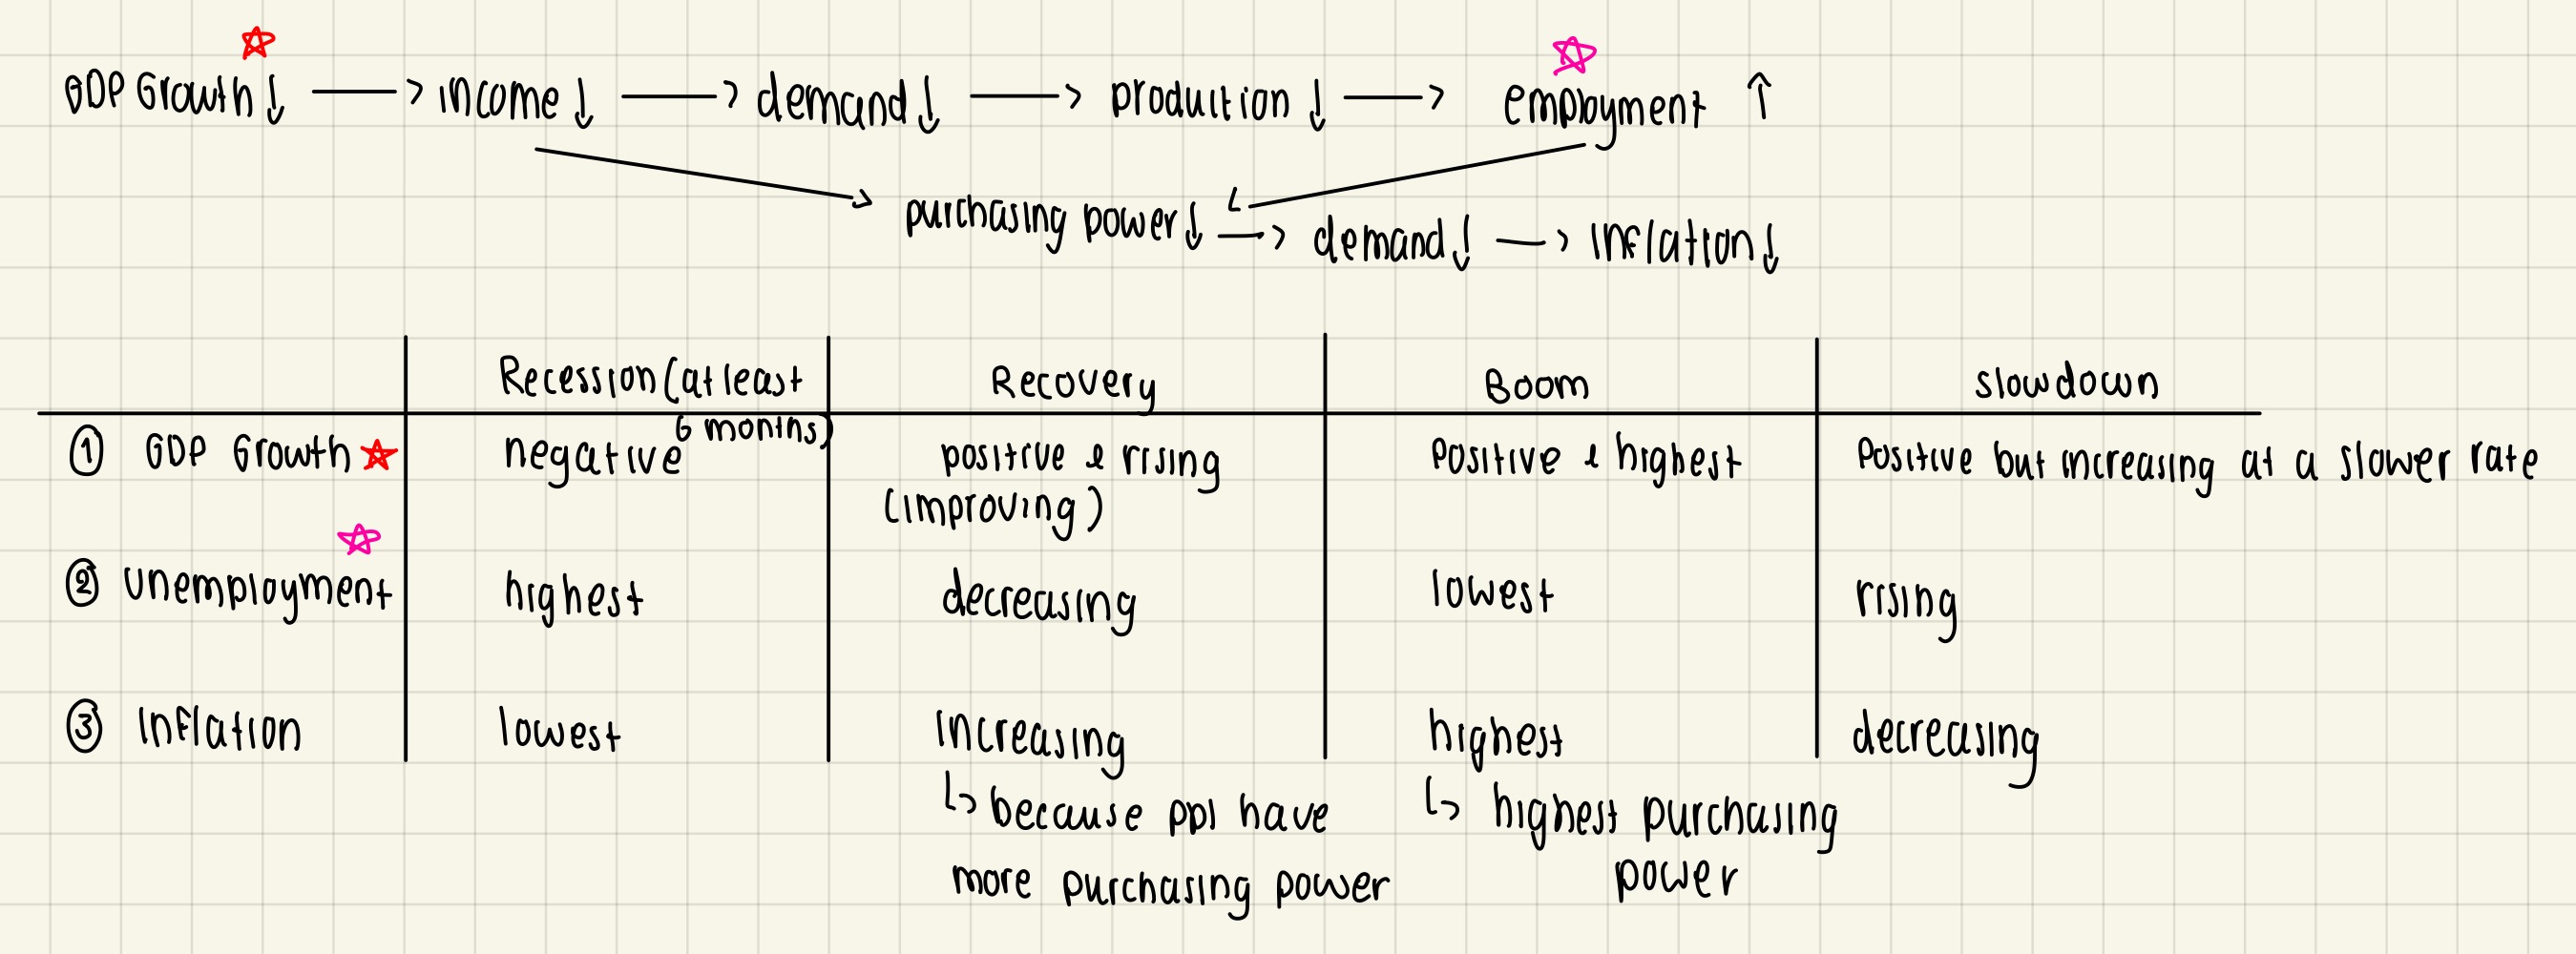 GDP Growth ↓ → income ↓ → demand ↓ → production ↓ → employment ↑
purchasing power ↓ → demand ↓ → inflation ↓
Recession (at least 6 months)
Recovery
Boom
slowdown
① GDP Growth
negative
positive & rising
(improving)
Positive & highest
Positive but increasing at a slower rate
② unemployment
highest
decreasing
lowest
rising
③ Inflation
lowest
increasing
↳ because ppl have
more purchasing power
highest
↳ highest purchasing
power
decreasing